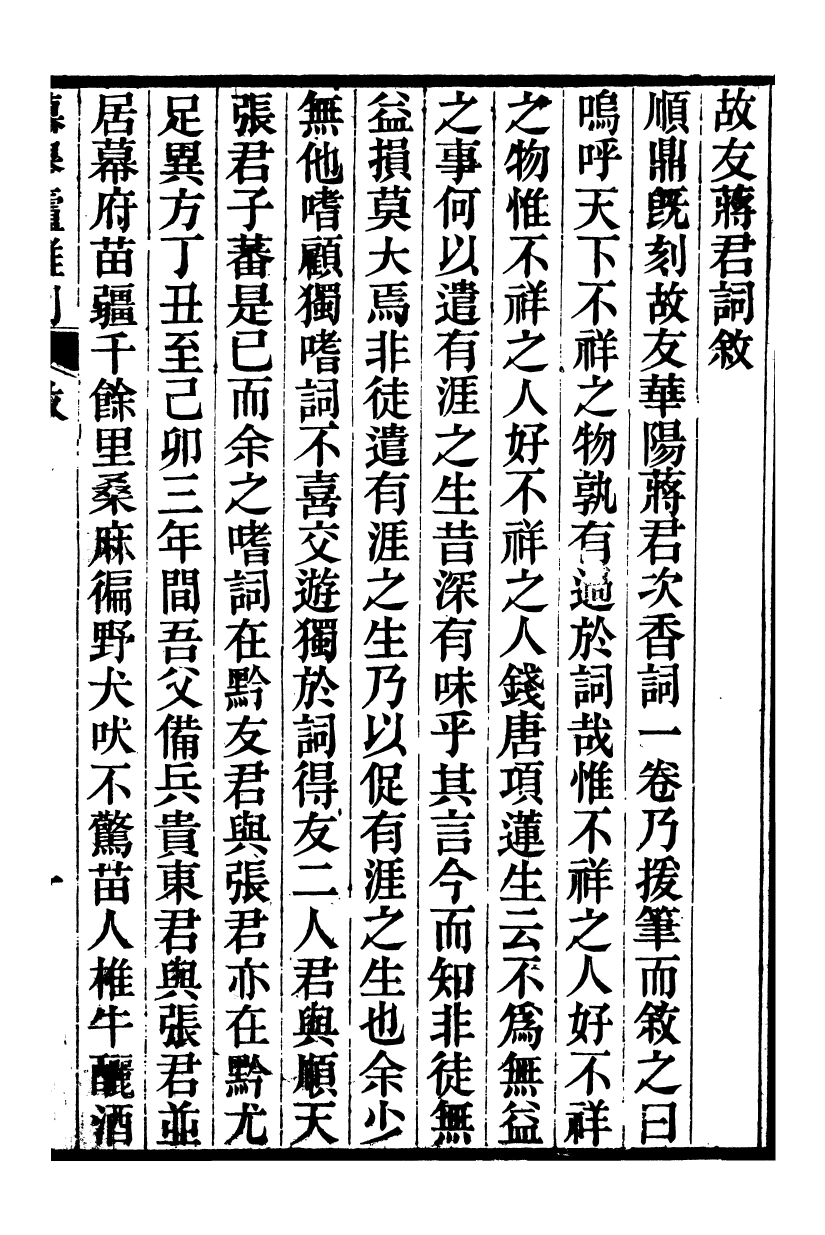 故友蔣君詞敘
順鼎旣刻故友華陽蔣君次香詞一卷乃援筆而敘之曰
嗚呼天下不祥之物孰有過於詞哉惟不祥之人好不祥
之物惟不祥之人好不祥之人錢唐項蓮生云不爲無益
之事何以遣有涯之生昔深有味乎其言今而知非徒無
益損莫大焉非徒遣有涯之生乃以促有涯之生也余少
無他嗜顧獨嗜詞不喜交遊獨於詞得友二人君與順天
張君子蕃是已而余之嗜詞在黔友君與張君亦在黔尤
足異方丁丑至己卯三年間吾父備兵貴東君與張君並
居幕府苗疆千餘里桑麻徧野犬吠不驚苗人椎牛釃酒